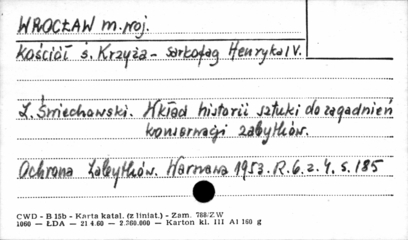 WROCŁAW m. woj.
Kościół ś. Krzyża - sarkofag Henryka IV.
Z. Śmiechowski. Wkład historii sztuki do zagadnień
konserwacji zabytków.
Ochrona Zabytków. Warszawa 1953. R. 6. z. 4. s. 185
CWD - B 15b - Karta katal. (z liniat.) - Zam. 788/ZW
1060 — ŁDA — 21 4.60 — 2.360.000 — Karton kl. III A1 160 g